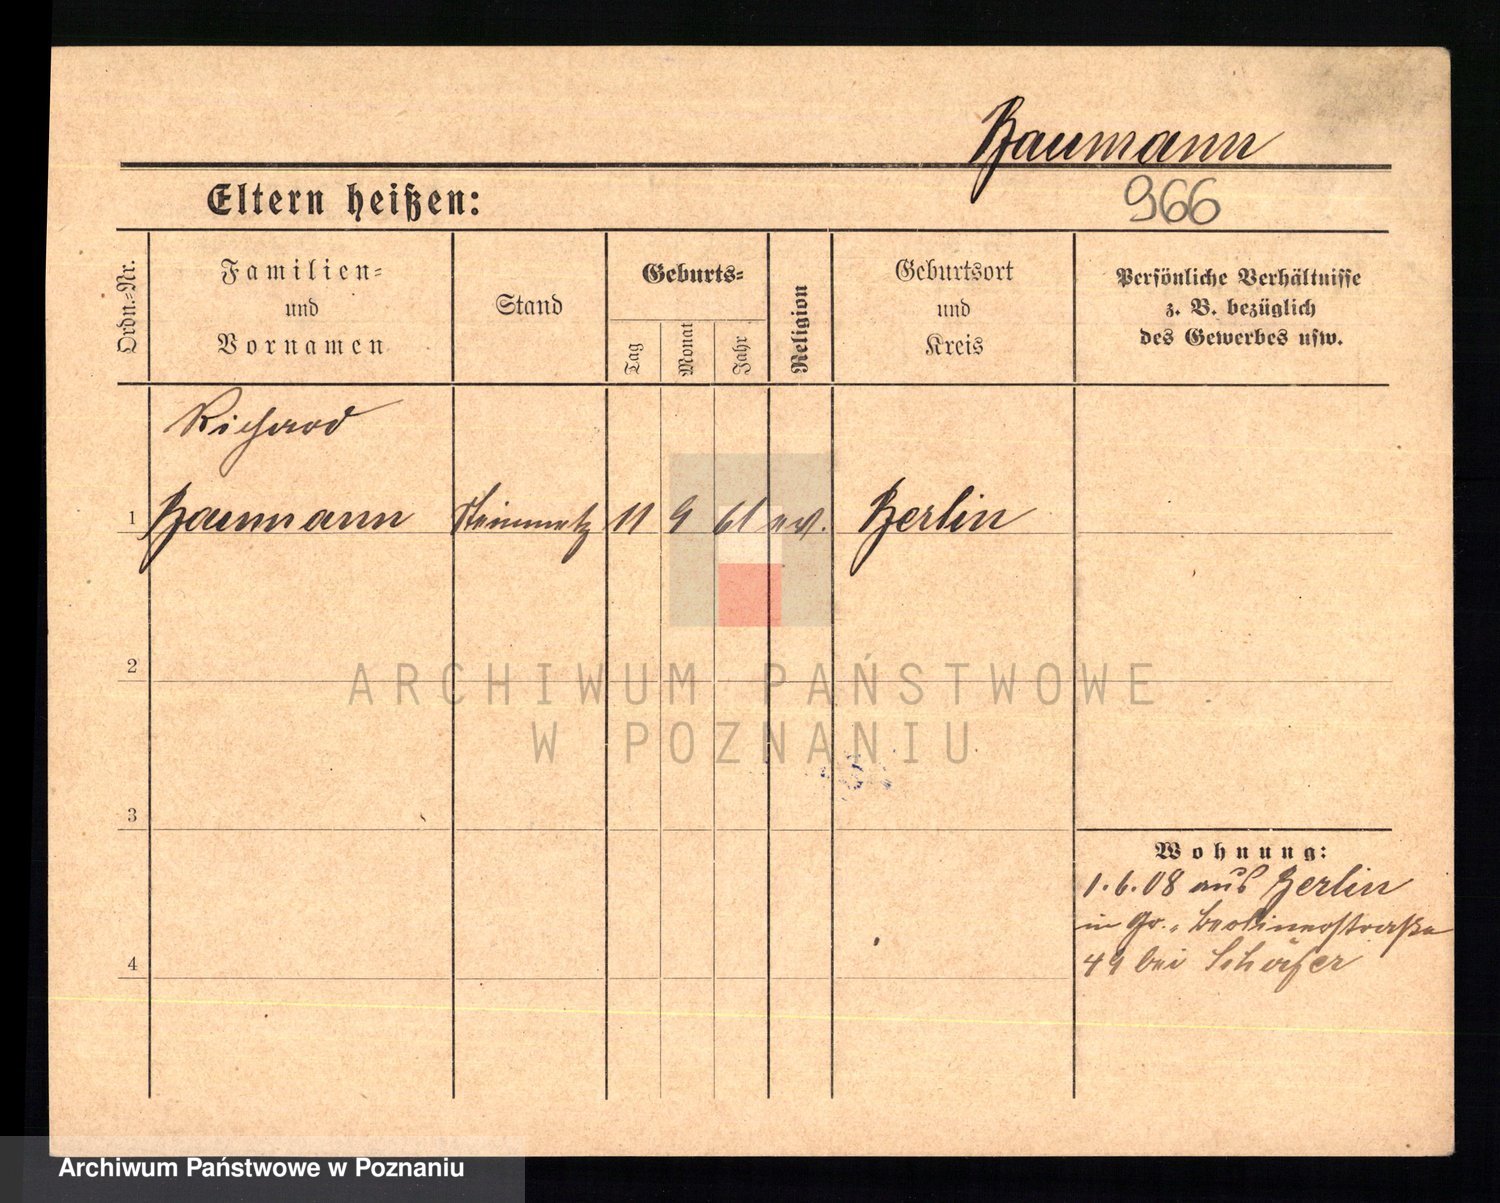 Baumann
Eltern heißen:
966
Ordn.-Nr.
Familien-
und
Vornamen
Stand
Geburts-
Tag
Monat
Jahr
Religion
Geburtsort
und
Kreis
Persönliche Verhältnisse
z. B. bezüglich
des Gewerbes usw.
Richard
1 Baumann Steinmetz 11 9 61 ev. Berlin
2
ARCHIWUM PAŃSTWOWE
W POZNANIU
3
Wohnung:
1.6.08 aus Berlin
in Gr. Berlinerstraße
49 bei Schäfer
4
Archiwum Państwowe w Poznaniu